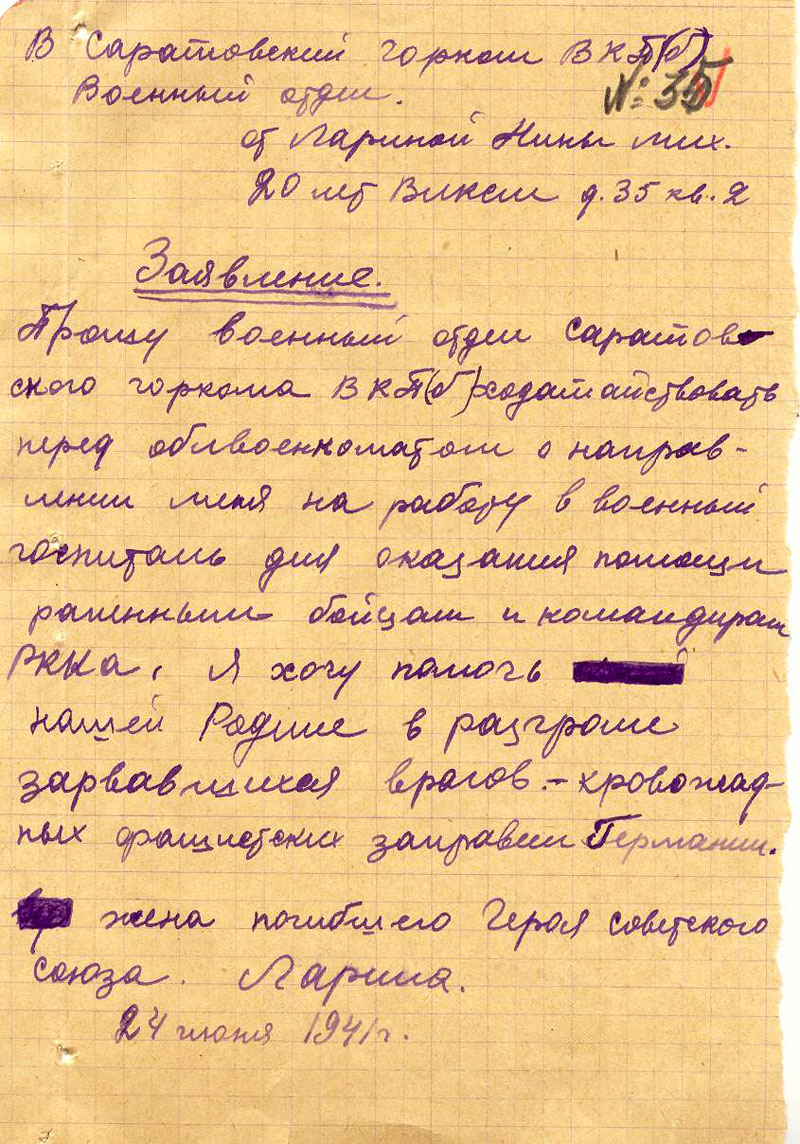 В Саратовский горком ВКП(б)
Военный отдел.
№ 35
от Лариной Нины мих.
20 лет ВЛКСМ д. 35 кв. 2
Заявление.
Прошу военный отдел Саратов-
ского горкома ВКП(б) ходатайствовать
перед облвоенкоматом о направ-
лении меня на работу в военный
госпиталь для оказания помощи
раненным бойцам и командирам
РККА, Я хочу помочь
нашей Родине в разгроме
зарвавшихся врагов. - кровожад-
ных фашистских заправил Германии.
жена погибшего Героя советского
союза. Ларина.
24 июня 1941 г.